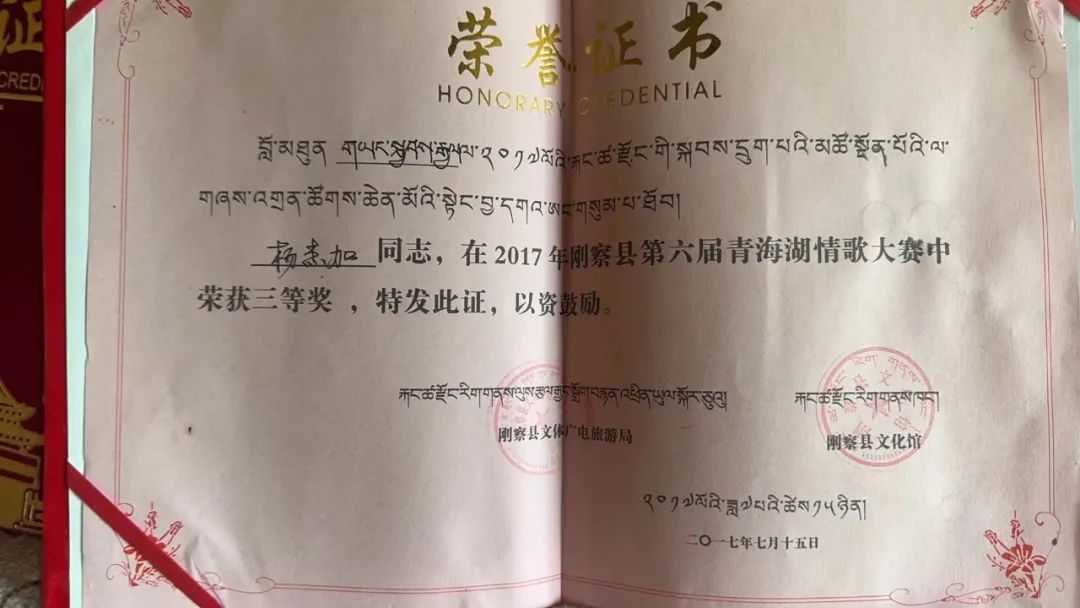 荣誉证书
HONORARY CREDENTIAL
བློ་མཐུན གཡང་སྐྱབས་རྒྱལ་༢༠༡༧ལོའི་རྐང་ཚ་རྫོང་གི་སྐབས་དྲུག་པའི་མཚོ་སྔོན་པོའི་ལ་
གཞས་འགྲན་ཚོགས་ཆེན་མོའི་སྟེང་བྱ་དགའ་ཨང་གསུམ་པ་ཐོབ།
杨 加 同志，在 2017 年刚察县第六届青海湖情歌大赛中
荣获三等奖 ，特发此证，以资鼓励。
རྐང་ཚ་རྫོང་རིག་གནས་ལུས་རྩལ་རྒྱང་སྒྲོག་བརྙན་འཕྲིན་ཡུལ་སྐོར་ཅུའུ།
刚察县文体广电旅游局
རྐང་ཚ་རྫོང་རིག་གནས་ཁང་།
刚察县文化馆
༢༠༡༧ལོའི་ཟླ༧པའི་ཚེས༡༥ཉིན།
二〇一七年七月十五日
CREDE